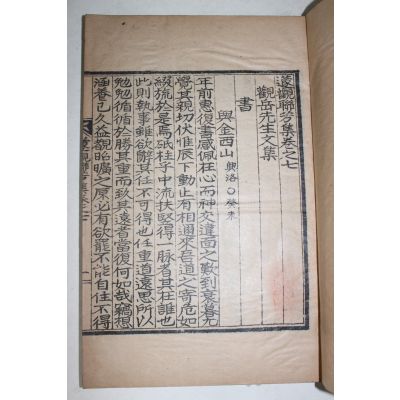 遯觀聯芳集卷之七
觀岳先生文集
書
與金西山 興洛○癸未
年前惠復書感佩枉心而神交違面之歎到衰暮尤
覺其親切伏惟辰下動止有相邇來吾道之寄危如
綴旒於是焉砥柱乎中流扶堅得一脉者其在誰也
此則執事雖欲辭其任不得也任重道遠思所以
勉勉循循於勝其重而致其遠者當復何如哉竊想
涵養已久益覩昭曠之原必有欲罷不能自住不得